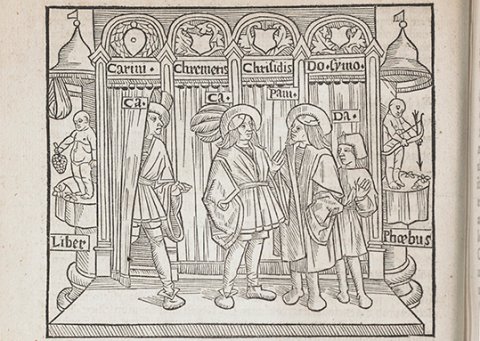 Carini · Chremetis Chrisidis Do. symo.
Ca. Ca. Pam. Da.
Liber Phœbus